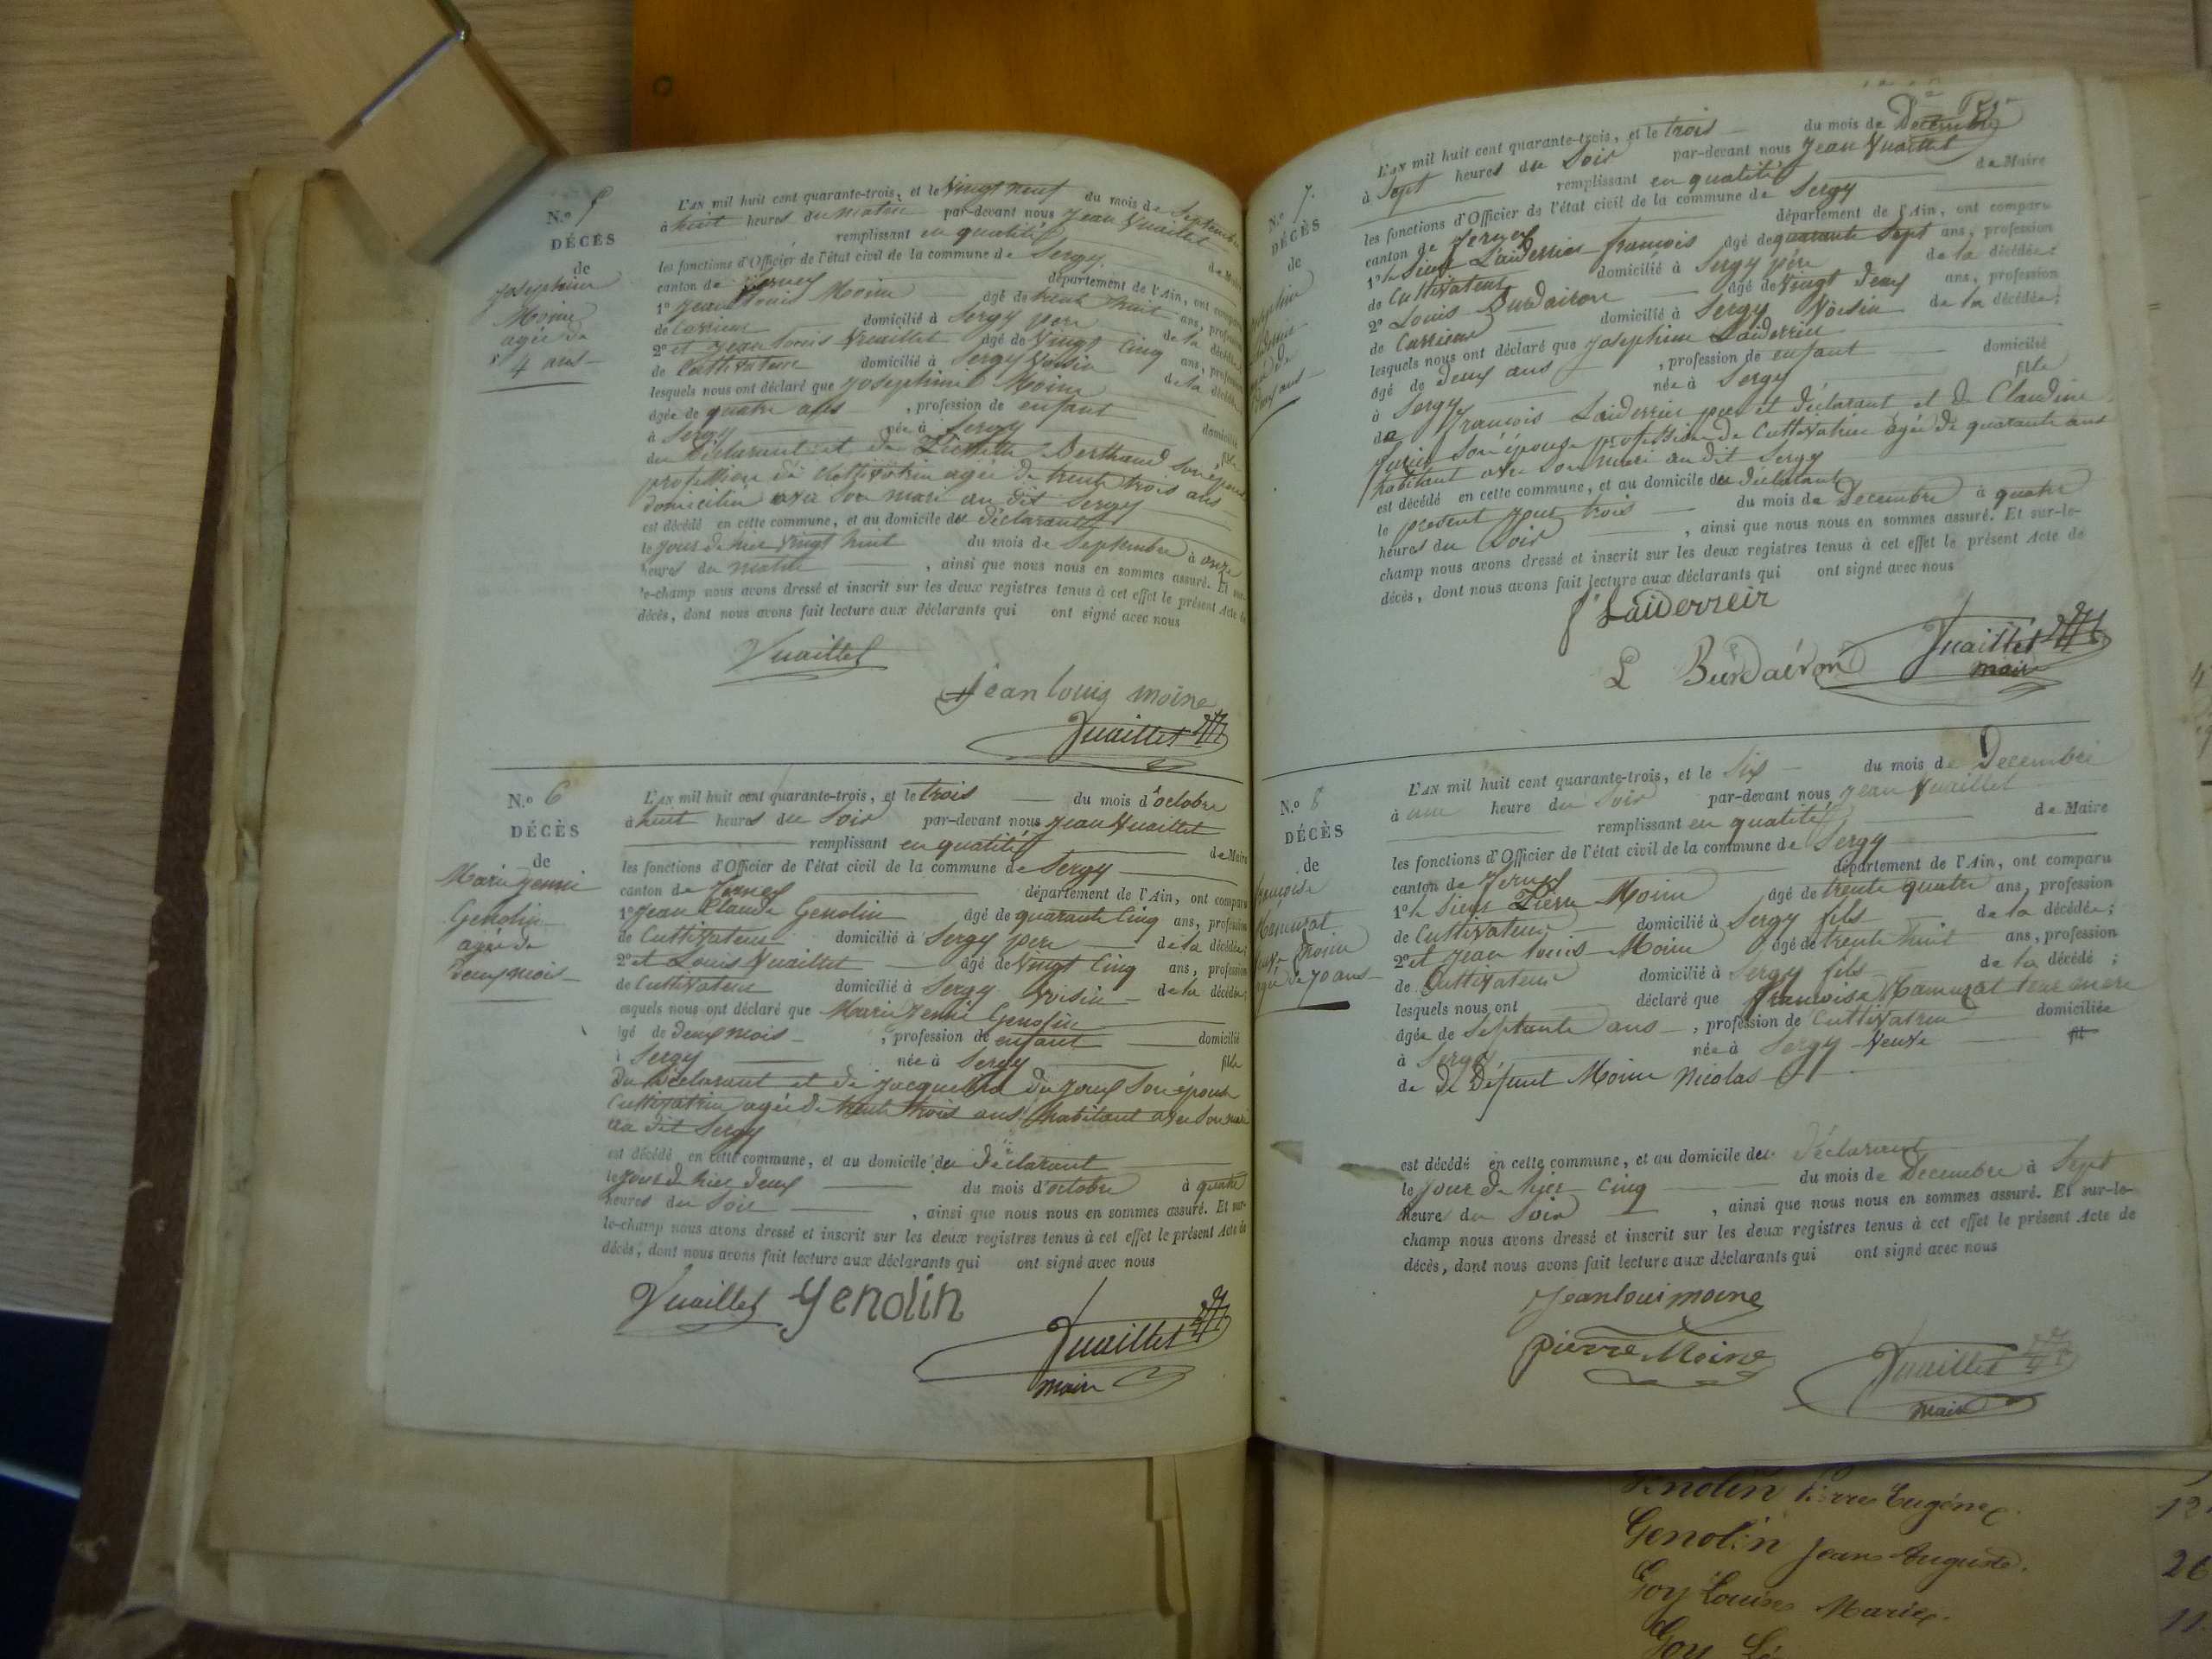 N.º 5
DÉCÈS
de
Josephine
Moine
agée de
4 ans
L'AN mil huit cent quarante-trois, et le Vingt neuf du mois de Septembre
à huit heures du matin par-devant nous Jean Vuaillet
remplissant en qualité de Maire
les fonctions d'Officier de l'état civil de la commune de Sergy
canton de Ferney département de l'Ain, ont comparu
1º Jean Louis Moine âgé de trente huit ans, profession
de Carrieur domicilié à Sergy pere de la décédée
2º et Jean Louis Vuaillet âgé de Vingt Cinq ans, profession
de Cultivateur domicilié à Sergy Voisin de la décédée
lesquels nous ont déclaré que Josephine Moine
âgée de quatre ans , profession de enfant domicilié
à Sergy née à Sergy fille
du Déclarant et de Berthaud Son épouse
profession de Cultivatrice agée de trente trois ans
domiciliée avec Son mari au dit Sergy
est décédé en cette commune, et au domicile du déclarant
le jour de hier Vingt huit du mois de Septembre à onze
heures du matin , ainsi que nous nous en sommes assuré. Et sur-
le-champ nous avons dressé et inscrit sur les deux registres tenus à cet effet le présent Acte de
décès, dont nous avons fait lecture aux déclarants qui ont signé avec nous
Vuaillet
Jean louis moine
Vuaillet
N.º 6
DÉCÈS
de
Marie Jenni
Genolin
agée de
deux mois
L'AN mil huit cent quarante-trois, et le trois du mois d'octobre
à huit heures du Soir par-devant nous Jean Vuaillet
remplissant en qualité de Maire
les fonctions d'Officier de l'état civil de la commune de Sergy
canton de Ferney département de l'Ain, ont comparu
1º Jean Claude Genolin âgé de quarante Cinq ans, profession
de Cultivateur domicilié à Sergy pere de la décédée;
2º et Louis Vuaillet âgé de Vingt Cinq ans, profession
de Cultivateur domicilié à Sergy Voisin de la décédée;
lesquels nous ont déclaré que Marie Jenni Genolin
âgé de deux mois , profession de enfant domicilié
à Sergy née à Sergy fille
du Déclarant et de Jacqueline du Joux Son épouse
Cultivatrice agée de trente trois ans habitant avec Son mari
au dit Sergy
est décédé en cette commune, et au domicile du déclarant
le jour de hier deux du mois d'octobre à quatre
heures du Soir , ainsi que nous nous en sommes assuré. Et sur-
le-champ nous avons dressé et inscrit sur les deux registres tenus à cet effet le présent Acte de
décès, dont nous avons fait lecture aux déclarants qui ont signé avec nous
Vuaillet Genolin
Vuaillet
maire
N.º 7.
DÉCÈS
de
L'AN mil huit cent quarante-trois, et le trois du mois de Decembre
à Sept heures du Soir par-devant nous Jean Vuaillet
remplissant en qualité de Maire
les fonctions d'Officier de l'état civil de la commune de Sergy
canton de Ferney département de l'Ain, ont comparu
1º le Sieur Laiderrier francois âgé de quarante Sept ans, profession
de Cultivateur domicilié à Sergy père de la décédée;
2º Louis Burdairon âgé de Vingt deux ans, profession
de Carrieur domicilié à Sergy Voisin de la décédée;
lesquels nous ont déclaré que Josephine Laiderrier
âgé de deux ans , profession de enfant domicilié
à Sergy née à Sergy fille
de francois Laiderrier pere et déclarant et de Claudine
Son épouse profession de Cultivatrice agée de quarante ans
habitant avec Son mari au dit Sergy
est décédé en cette commune, et au domicile du déclarant
le present jour trois du mois de Decembre à quatre
heures du Soir , ainsi que nous nous en sommes assuré. Et sur-le-
champ nous avons dressé et inscrit sur les deux registres tenus à cet effet le présent Acte de
décès, dont nous avons fait lecture aux déclarants qui ont signé avec nous
f Laiderreir
L Burdairon Vuaillet
maire
N.º 8
DÉCÈS
de
françoise
Mamurat
Moine
agée de 70 ans
L'AN mil huit cent quarante-trois, et le Six du mois de Decembre
à une heure du Soir par-devant nous Jean Vuaillet
remplissant en qualité de Maire
les fonctions d'Officier de l'état civil de la commune de Sergy
canton de Ferney département de l'Ain, ont comparu
1º le Sieur Pierre Moine âgé de trente quatre ans, profession
de Cultivateur domicilié à Sergy fils de la décédée;
2º et Jean Louis Moine âgé de trente huit ans, profession
de Cultivateur domicilié à Sergy fils de la décédé ;
lesquels nous ont déclaré que francoise Mamurat leur mere
âgée de Septante ans , profession de Cultivatrice domiciliée
à Sergy née à Sergy Veuve fil
de De Défunt Moine Nicolas
est décédé en cette commune, et au domicile des déclarant
le jour de hier Cinq du mois de Decembre à Sept
heure du Soir , ainsi que nous nous en sommes assuré. Et sur-le-
champ nous avons dressé et inscrit sur les deux registres tenus à cet effet le présent Acte de
décès, dont nous avons fait lecture aux déclarants qui ont signé avec nous
Jeanlouis moine
pierre Moine
Vuaillet
maire
Genolin Pierre Eugène. 12
Genolin Jean Auguste. 26
Goy Louise Marie. 11
Goy